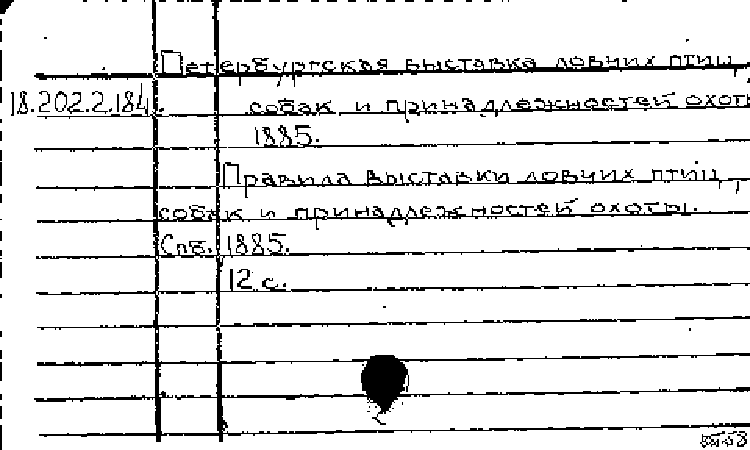 Петербургская выставка ловчих птиц,
18.202.2.184. собак и принадлежностей охоты
1885.
Правила выставки ловчих птиц,
собак и принадлежностей охоты.
Спб. 1885.
12 с.